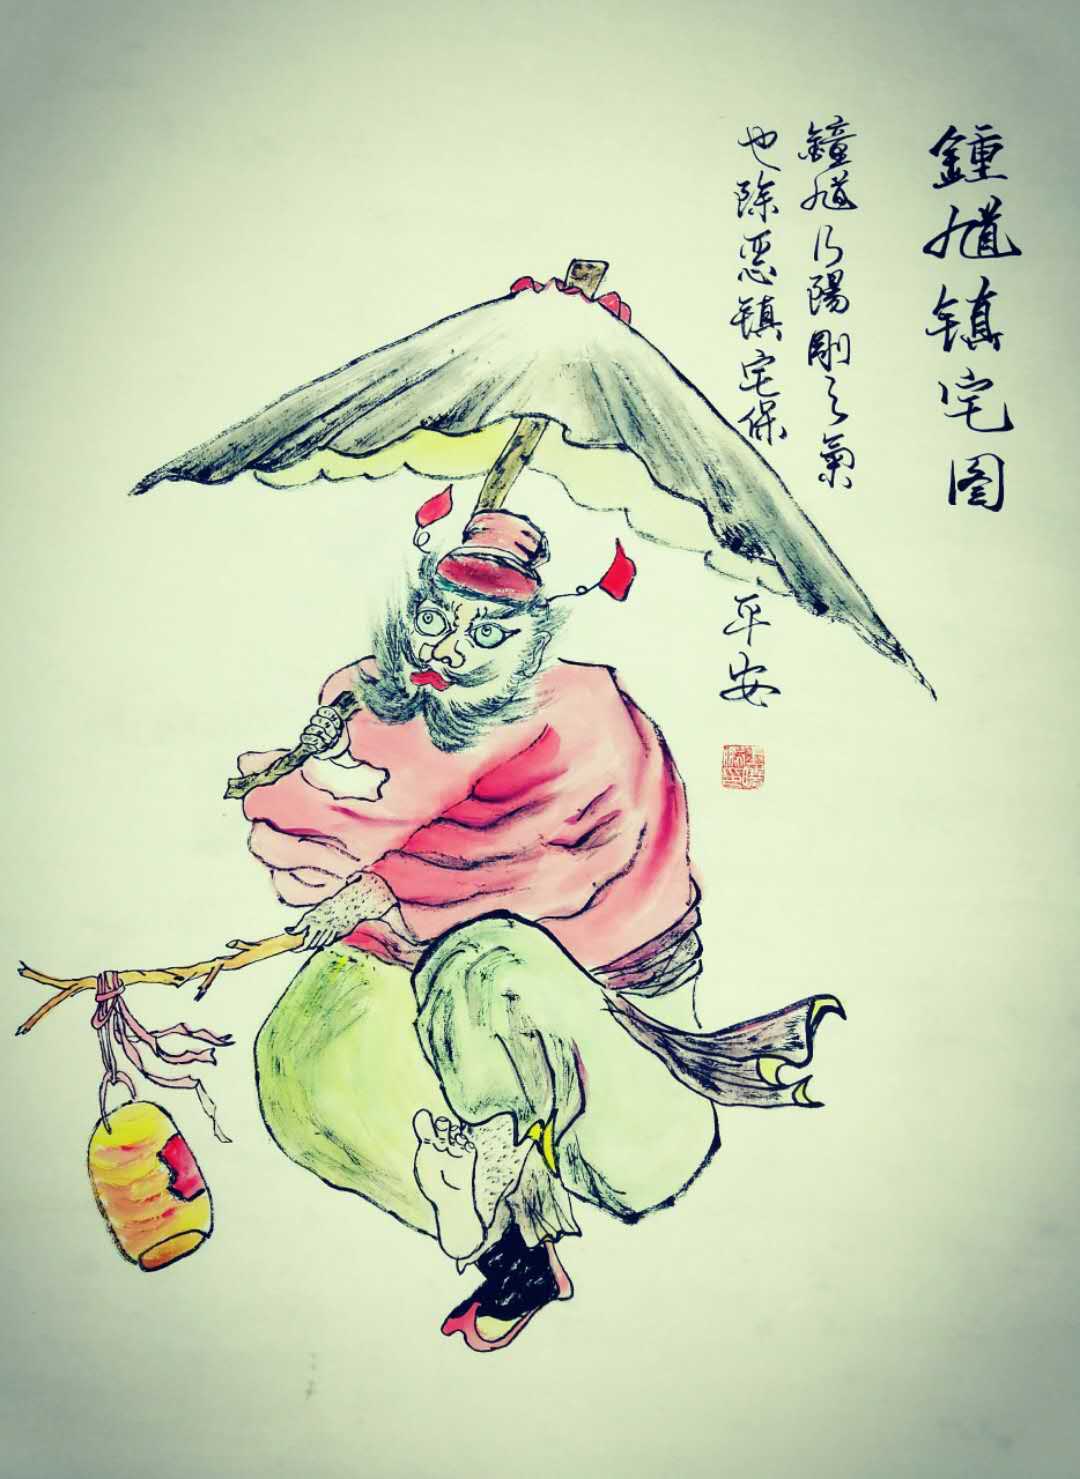 鍾馗镇宅图
鐘馗乃陽剛之氣
也除恶镇宅保
平安